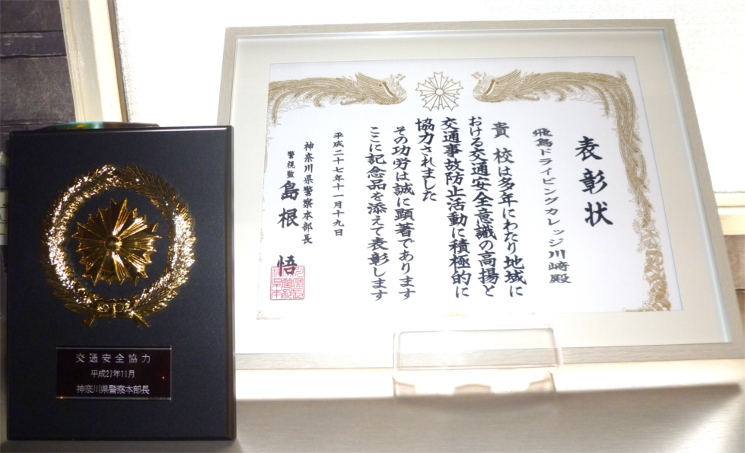 表彰状
飛鳥ドライビングカレッジ川崎殿
貴校は多年にわたり地域に
おける交通安全意識の高揚と
交通事故防止活動に積極的に
協力されました
その功労は誠に顕著であります
ここに記念品を添えて表彰します
平成二十七年十一月十九日
神奈川県警察本部長
警視監 島根悟
交通安全協力
平成27年11月
神奈川県警察本部長